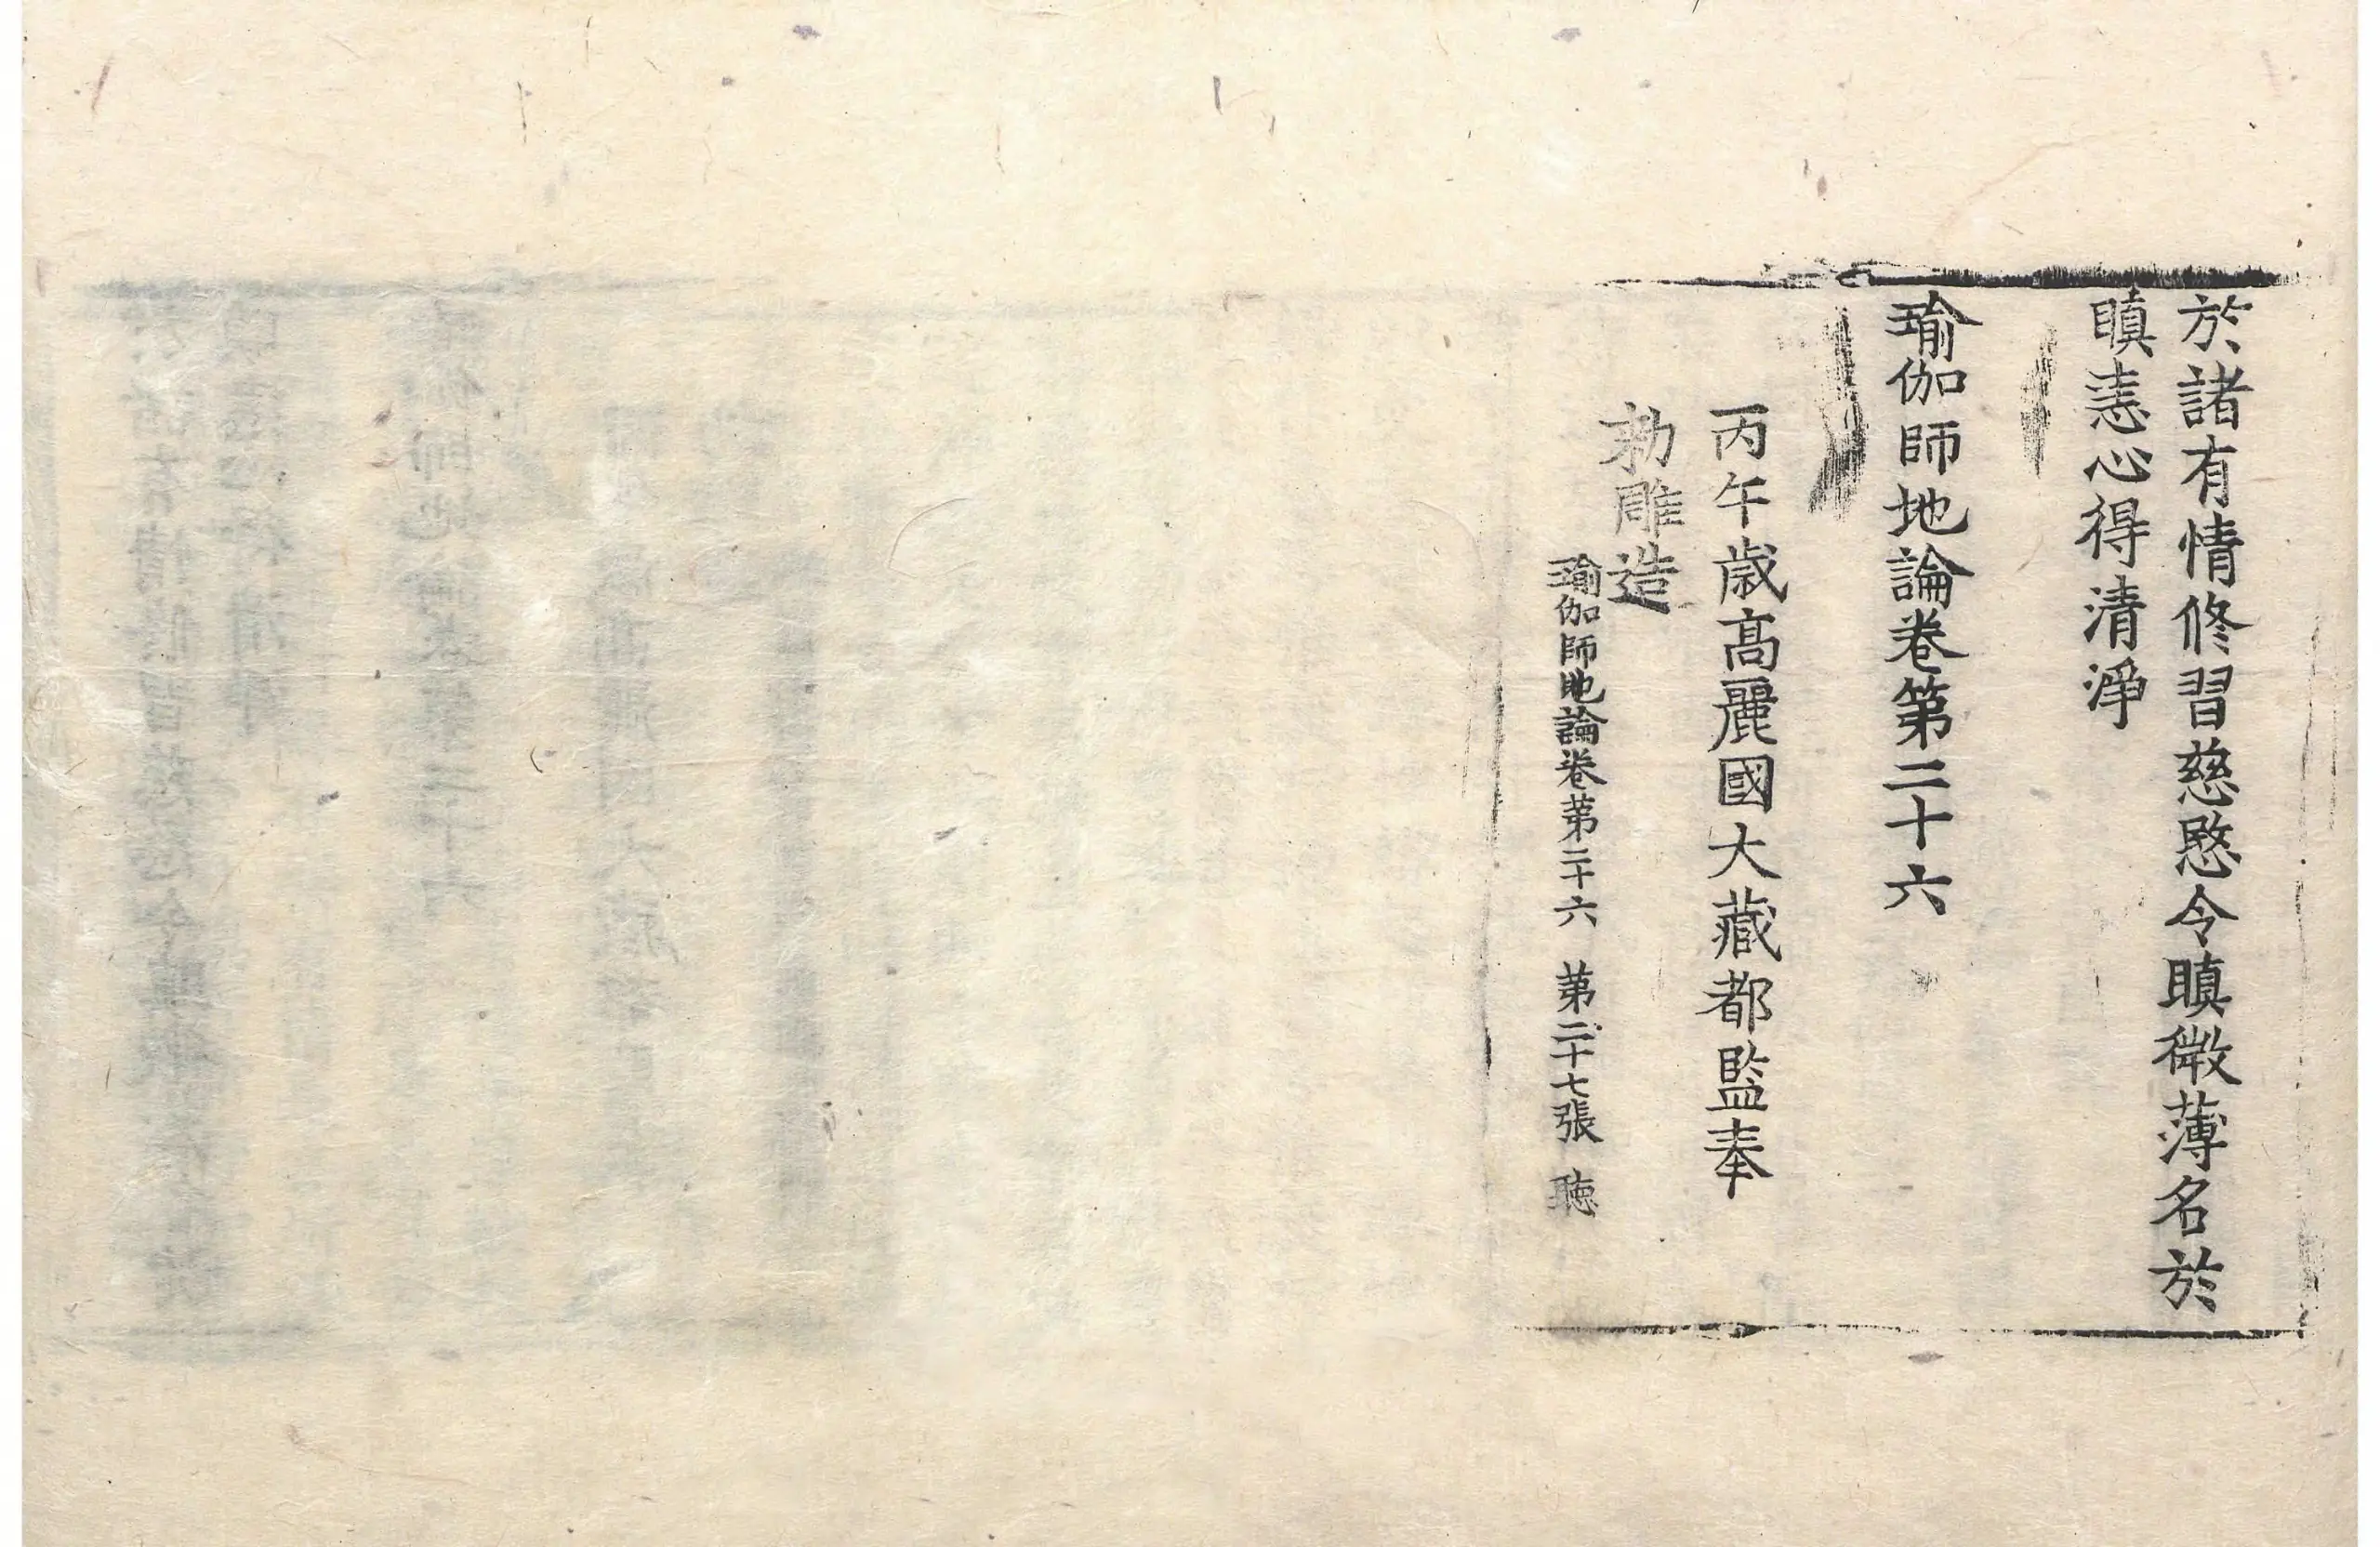 於諸有情修習慈愍令瞋微薄名於
瞋恚心得清淨
瑜伽師地論卷第二十六
丙午歲高麗國大藏都監奉
勅雕造
瑜伽師地論卷第二十六 第二十七張 聴